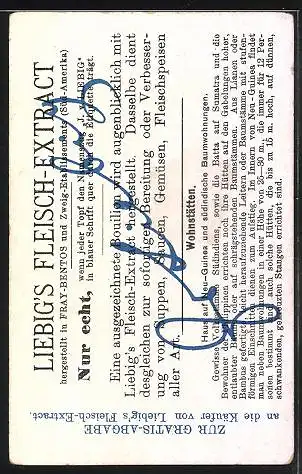 LIEBIG'S FLEISCH-EXTRACT
hergestellt in FRAY-BENTOS und Zweig-Etablissements (Süd-Amerika)
Nur echt, wenn jeder Topf den Namenszug J. v. LIEBIG
in blauer Schrift quer durch die Etiquette trägt.
Eine ausgezeichnete Bouillon wird augenblicklich mit
Liebig's Fleisch-Extract hergestellt. Dasselbe dient
desgleichen zur sofortigen Bereitung oder Verbesser-
ung von Suppen, Saucen, Gemüsen, Fleischspeisen
aller Art.
Wohnstätten.
Haus auf Neu-Guinea und südindische Baumwohnungen.
Gewisse Volksstämme Südindiens, sowie die Batta auf Sumatra und die
Bewohner der Philippinen errichten noch ihre Hütten auf den Gabelungen hoher,
entlaubter Bäume oder auf schrägstehenden Baumstämmen. Aus Lianen oder
Bambus gefertigte, leicht heraufzuziehende Leitern oder Baumstämme mit stufen-
förmigen Einschnitten dienen zum Aufstieg. Im Innern von Neu-Guinea findet
man neben Baumwohnungen in einer Höhe von 25—30 m, die immer für 12 Per-
sonen bestimmt sind, auch solche Hütten, die bis zu 15 m. hoch, auf dünnen,
schwankenden, gekreuzten Stangen errichtet sind.
ZUR GRATIS-ABGABE
an die Käufer von Liebig's Fleisch-Extract.